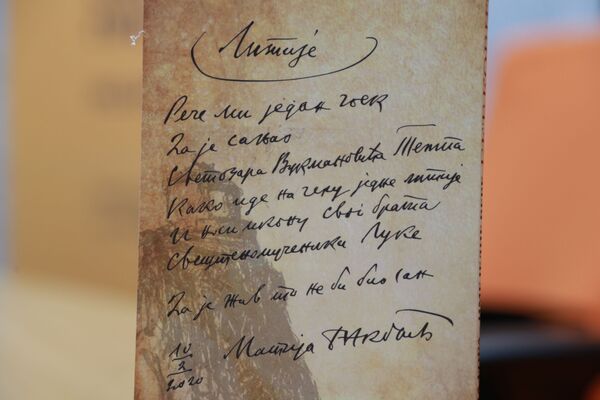 Литије
Рече ми један чоек
Да је сањао
Светозара Вукмановића Темпа
Како иде на челу једне литије
И носи икону свог брата
Свештеномученика Луке
Да је жив то не би био сан
Матија Бећковић
10
3
2020